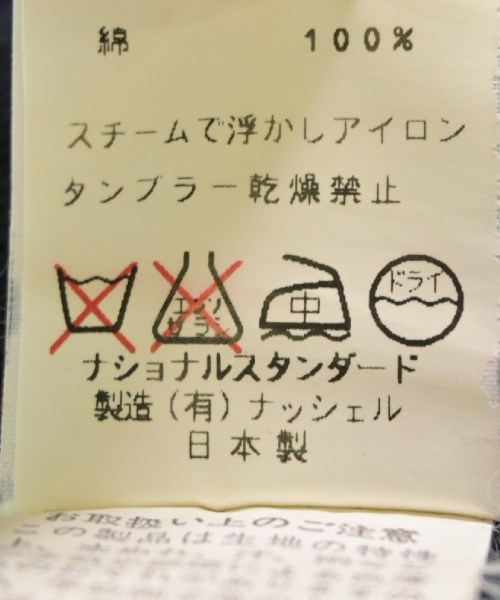 綿 100%
スチームで浮かしアイロン
タンブラー乾燥禁止
エンソ
サラシ
中
ドライ
ナショナルスタンダード
製造(有)ナッシェル
日本製
お取扱い上のご注意
この製品は生地の特性